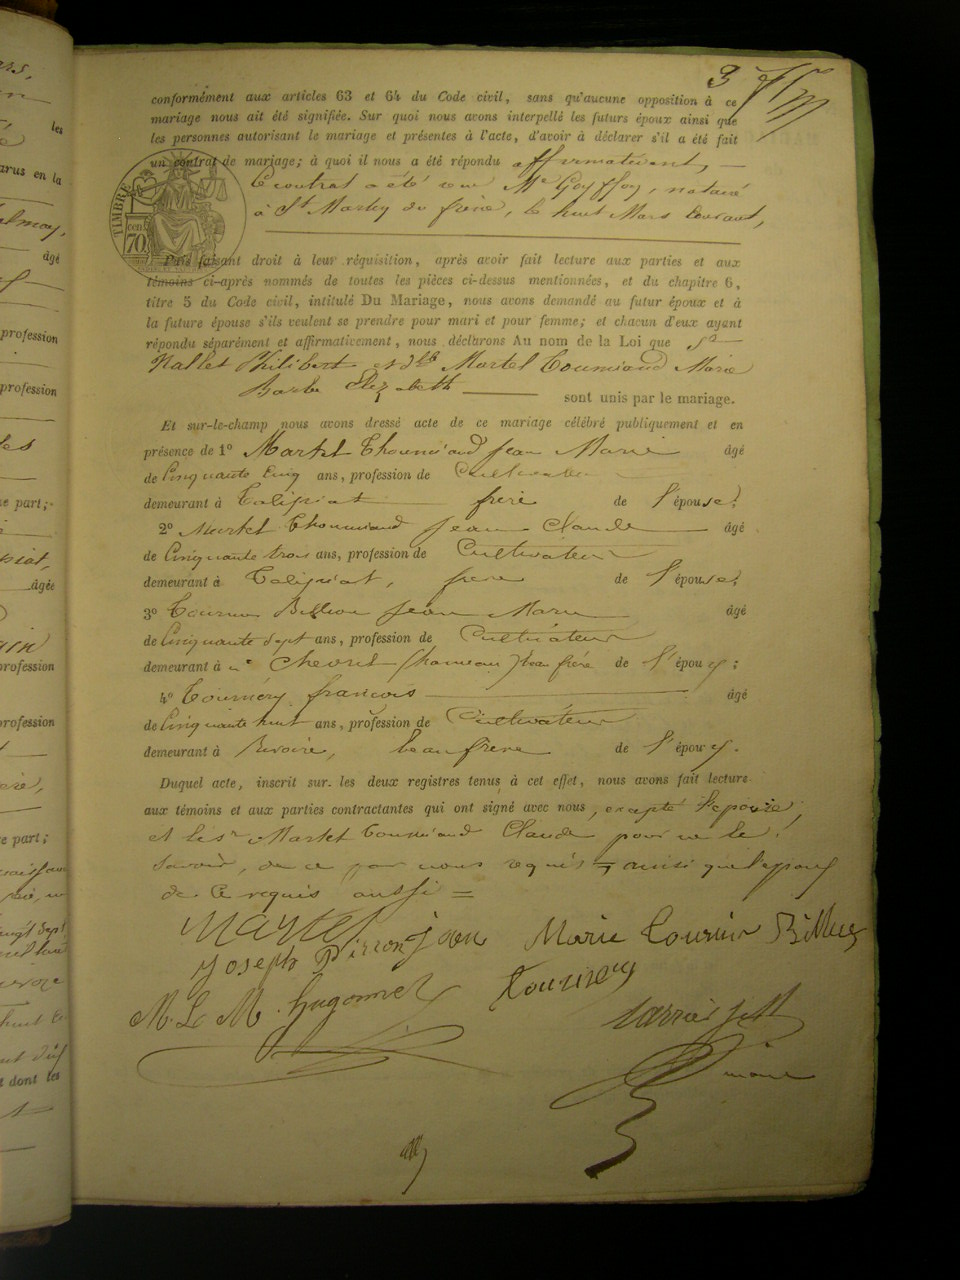 3
conformément aux articles 63 et 64 du Code civil, sans qu'aucune opposition à ce
mariage nous ait été signifiée. Sur quoi nous avons interpellé les futurs époux ainsi que
les personnes autorisant le mariage et présentes à l'acte, d'avoir à déclarer s'il a été fait
un contrat de mariage; à quoi il nous a été répondu affirmativement,
le contrat a été reçu Me Goyffon, notaire
à St Martin du frêne, le huit Mars courant,
TIMBRE
70
Puis faisant droit à leur réquisition, après avoir fait lecture aux parties et aux
témoins ci-après nommés de toutes les pièces ci-dessus mentionnées, et du chapitre 6,
titre 5 du Code civil, intitulé Du Mariage, nous avons demandé au futur époux et à
la future épouse s'ils veulent se prendre pour mari et pour femme; et chacun d'eux ayant
répondu séparément et affirmativement, nous déclarons Au nom de la Loi que Sr
Nallet Philibert et dlle Martel Toumiand Marie
Barbe Elizabeth sont unis par le mariage.
Et sur-le-champ nous avons dressé acte de ce mariage célébré publiquement et en
présence de 1o Martel Thoumiand Jean Marie âgé
de Cinquante cinq ans, profession de Cultivateur
demeurant à Talipiat frère de l'épouse;
2o Martel Thoumiand Jean Claude âgé
de Cinquante trois ans, profession de Cultivateur
demeurant à Talipiat, frère de l'épouse;
3o Tournier Billion Jean Marie âgé
de Cinquante sept ans, profession de Cultivateur
demeurant à Chevril (hameau) beau frère de l'époux;
4o Tournéry françois âgé
de Cinquante huit ans, profession de Cultivateur
demeurant à Rivoire, beau frère de l'époux.
Duquel acte, inscrit sur les deux registres tenus à cet effet, nous avons fait lecture
aux témoins et aux parties contractantes qui ont signé avec nous, excepté l'épouse,
et le sr Martel Toumiand Claude pour ne le
savoir, de ce par nous requis ainsi que l'époux
de ce requis aussi =
Martel
Joseph Pirron Jean Marie Tournier Billion
M. L. M. Hugonnet Tournery
maire